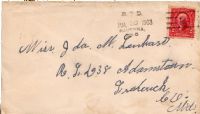 R. F. D.
1903
Miss Ida. M. Lenhart
R. F. 2938 Adamstown
Frederick
Co.
Md.